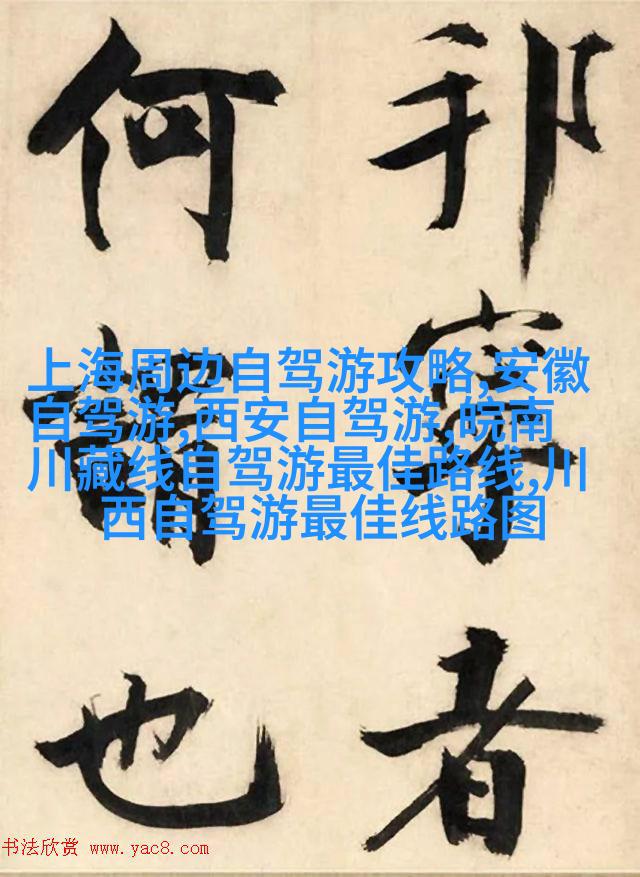 邦
者
何
也
上海周边自驾游攻略,安徽
自驾游,西安自驾游,皖南
川藏线自驾游最佳路线,川
西自驾游最佳线路图
书法欣赏 www.yac8.com